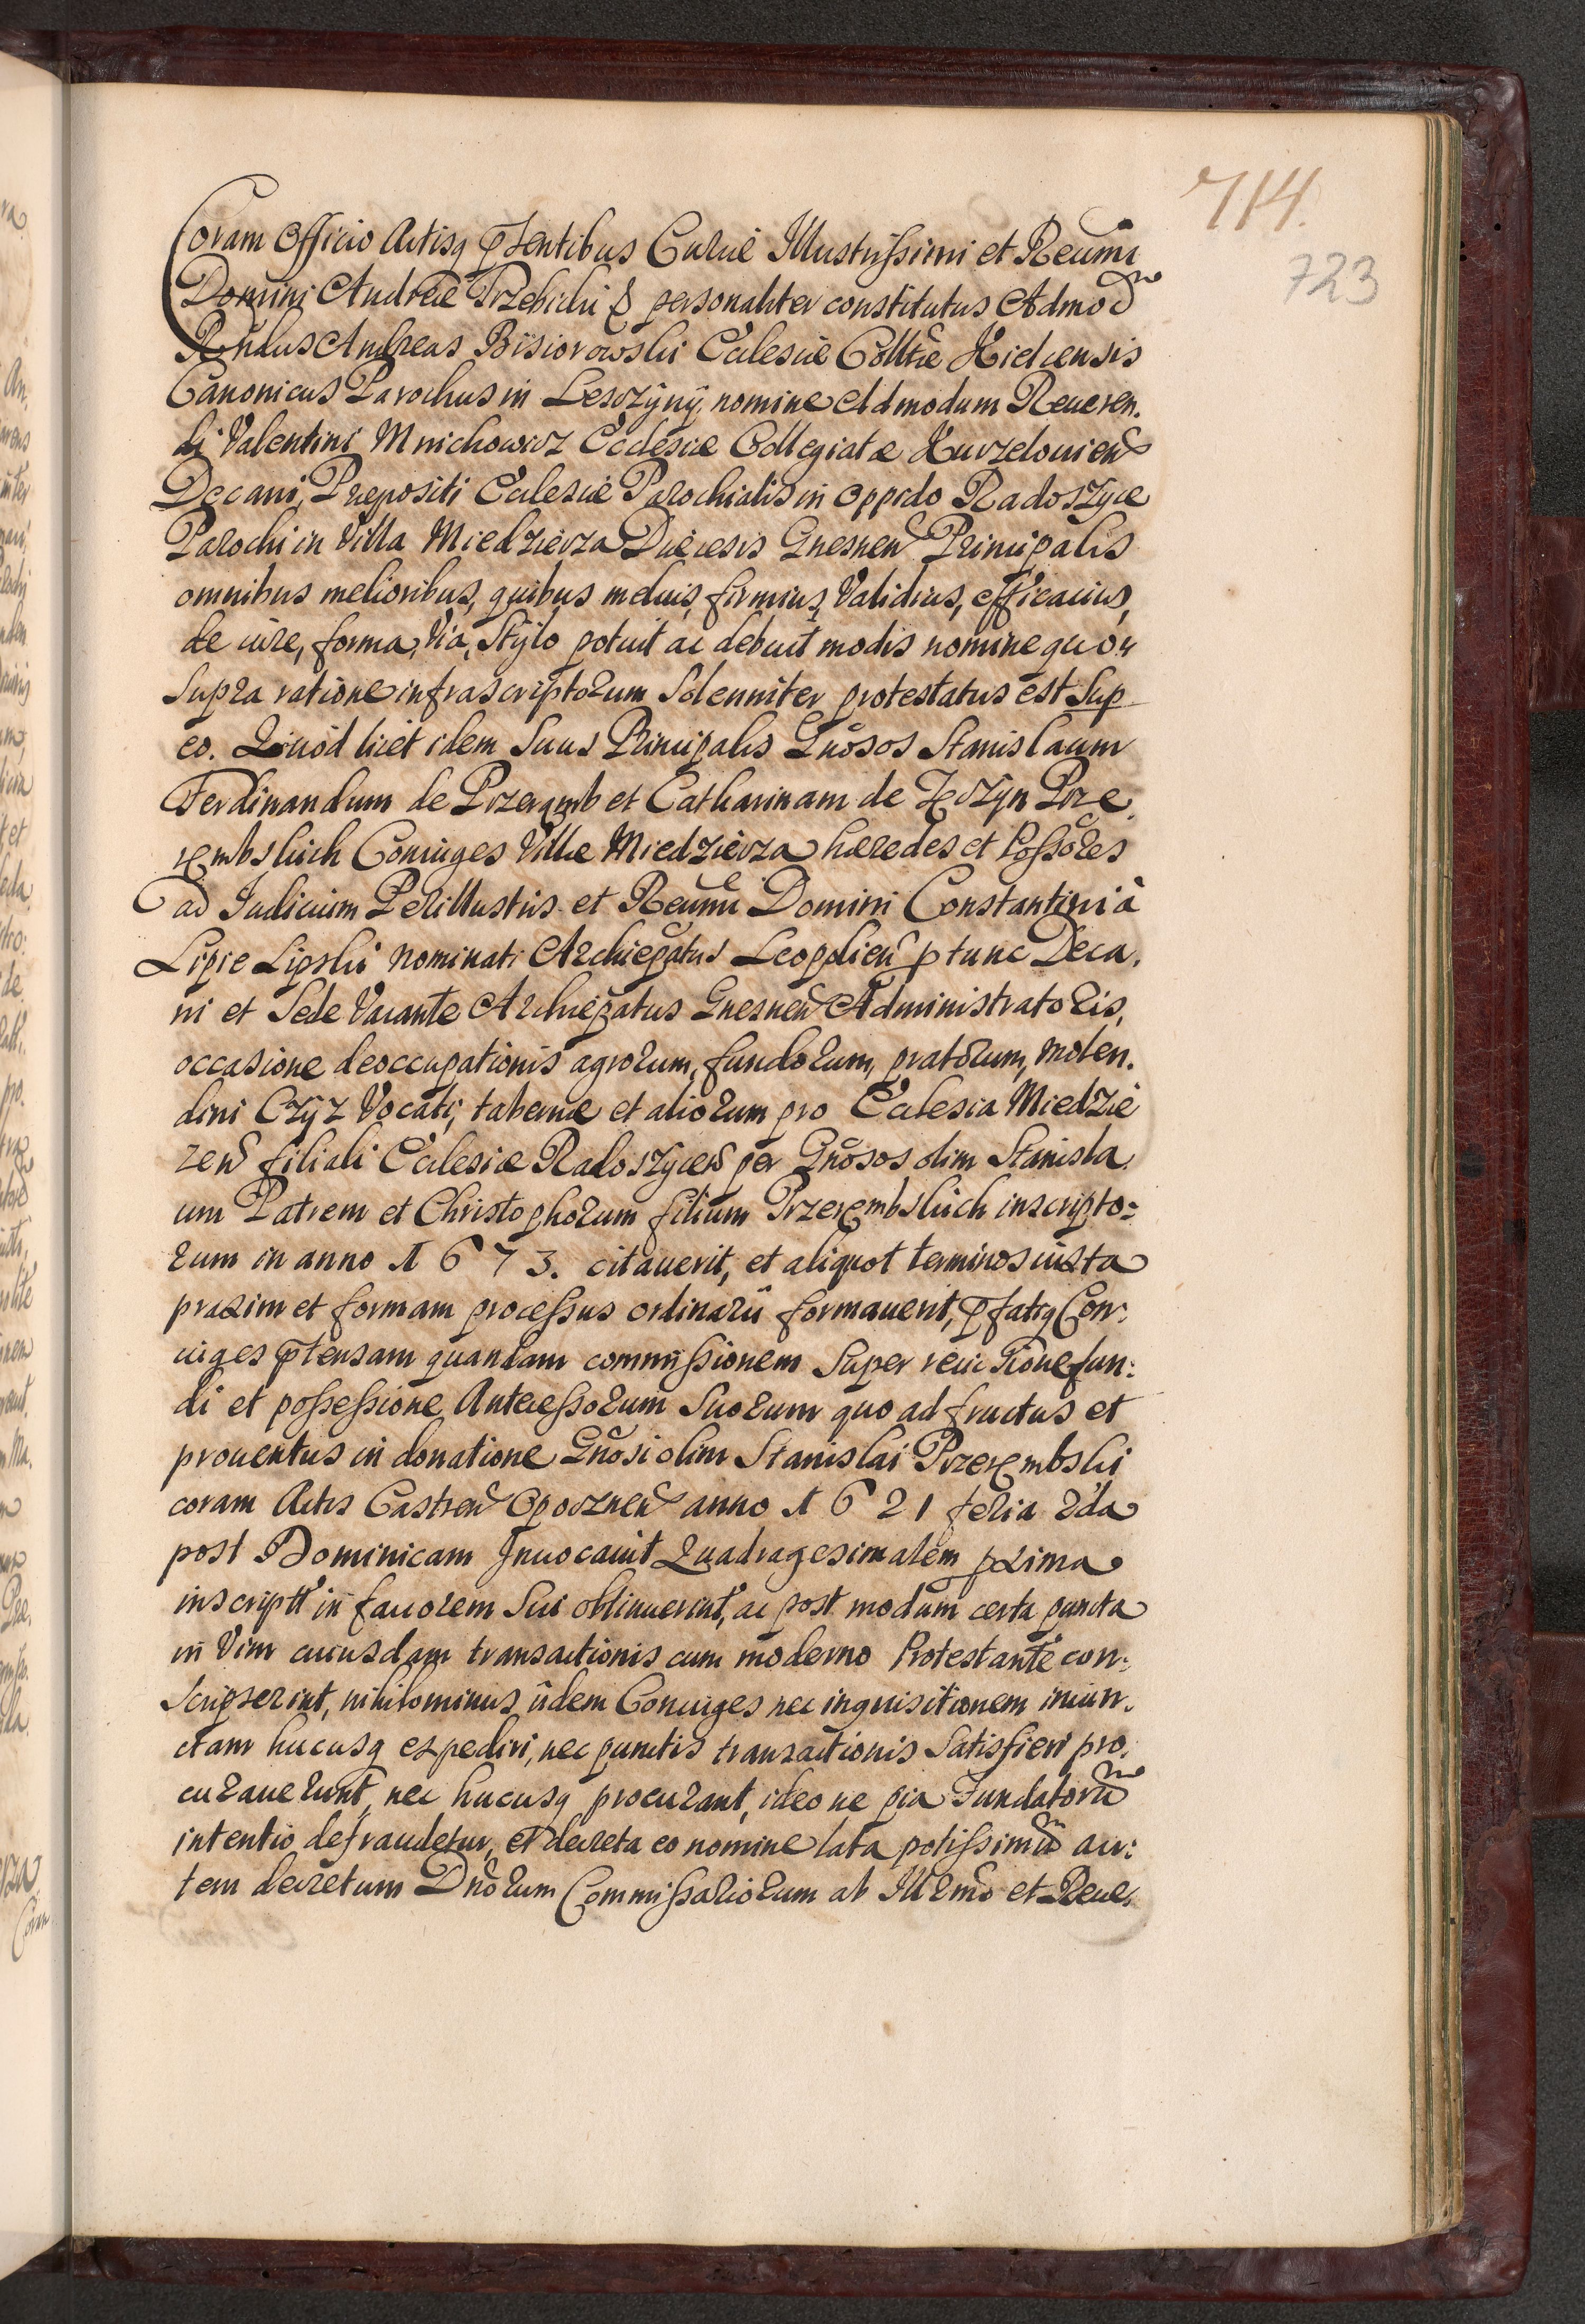 714.
723
Coram Officio Actisq pntibus Curiæ Illustrissimi et Reumi
Domini Andreæ Trzebicki & personaliter constitutus Admod
Rndus Andreas Bisiorowski Ecclesiæ Colltæ Kielcensis
Canonicus Parochus in Lesczyny, nomine Admodum Reueren.
di Valentini Mnichowicz Ecclesiæ Collegiatæ Kurzelouien
Decani, Præpositi Ecclesiæ Parochialis in Oppido Radoszyce
Parochi in Villa Miedzierza Diæcesis Gnesnen Principalis
omnibus melioribus, quibus melius, firmius, Validius, efficacius,
de iure, forma, Via, Stylo potuit ac debuit modis nomine quo
Supra ratione infrascriptorum Solenniter protestatus est Sup
eo. Quod licet idem Suus Principalis Gnosos Stanislaum
Ferdinandum de Przeramb et Catharinam de Teczyn Prze.
rembskich Coniuges Villæ Miedzierza hæredes et Possores
ad Iudicium Perillustris et Reumi Domini Constantini à
Lipie Lipski nominati Archiepatus Leopolien p tunc Deca.
ni et Sede Vacante Archiepatus Gnesnen Administratoris,
occasione deoccupationis agrorum, fundorum, pratorum, molen.
dini Czyz Vocati, tabernæ et aliorum pro Ecclesia Miedzie
zen filiali Ecclesiæ Radoszycen per Gnosos olim Stanisla.
um Patrem et Christophorum filium Przerembskich inscripto:
rum in anno 1673. citauerit, et aliquot terminos iuxta
praxim et formam processus ordinarii formauerit, pfatiq Con:
iuges ptensam quandam commissionem Super reuisione fun:
di et possessione Antecessorum Suorum quo ad fructus et
prouentus in donatione Gnosi olim Stanislai Przerembski
coram Actis Castren Opocznen anno 1621 feria 2da
post Dominicam Inuocauit Quadragesimalem pxima
inscriptt in fauorem Sui obtinuerint, ac post modum certa puncta
in Vim cuiusdam transactionis cum moderno Protestante con:
Scripserint, nihilominus iidem Coniuges nec inquisitionem iniun.
ctam hucusq expediri, nec punctis transactionis Satisfieri pro.
curauerunt, nec hucusq procurant, ideo ne pia Fundatoru
intentio defraudetur, et decreta eo nomine lata potissimu au:
tem decretum Dnorum Commissariorum ab Illrmo et Reue.